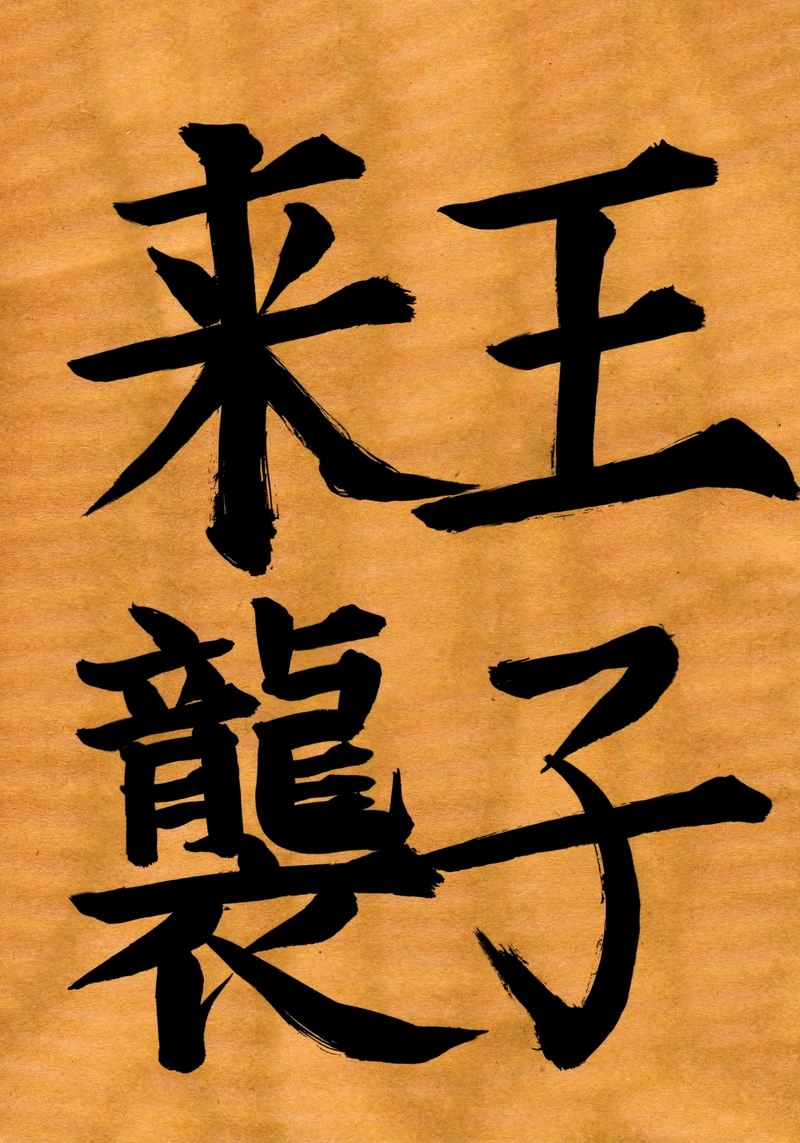 王子
来襲